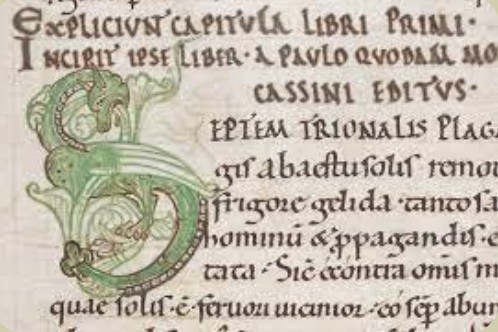 EXPLICIUNT CAPITULA LIBRI PRIMI·
INCIPIT IPSE LIBER· A PAULO QUODAM MO
CASSINI EDITUS·
SEPTEMTRIONALIS PLAGA
gis ab aestu solis remot
frigore gelida· tanto sa
hominū & ꝓpagandis· e
tata· Sic̄ econtra omīs m
quae solis· ē· feruori uicinior· eo sep̄ abun